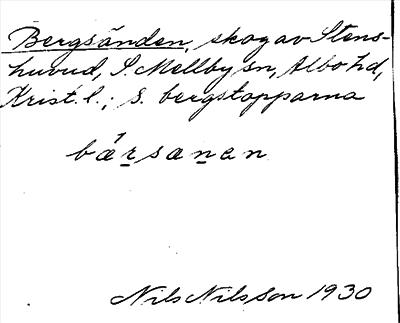 Bergsänden, skog av Stens-
huvud, S. Mellby sn, Albo hd,
Krist. l.; s. bergstopparna
bærsanen
Nils Nilsson 1930